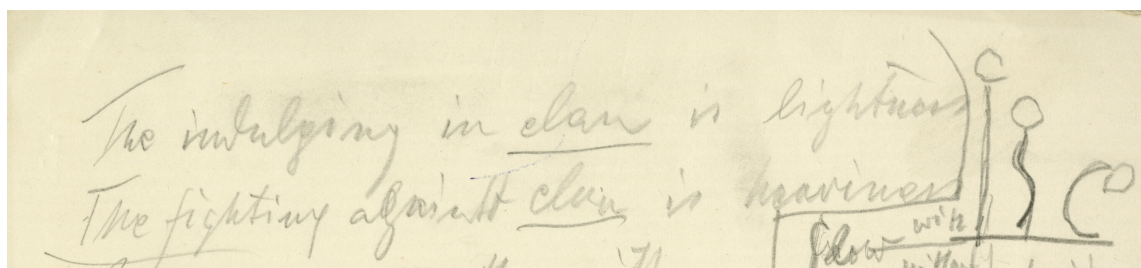 The indulging in elan is lightness
The fighting against elan is heaviness
flow with